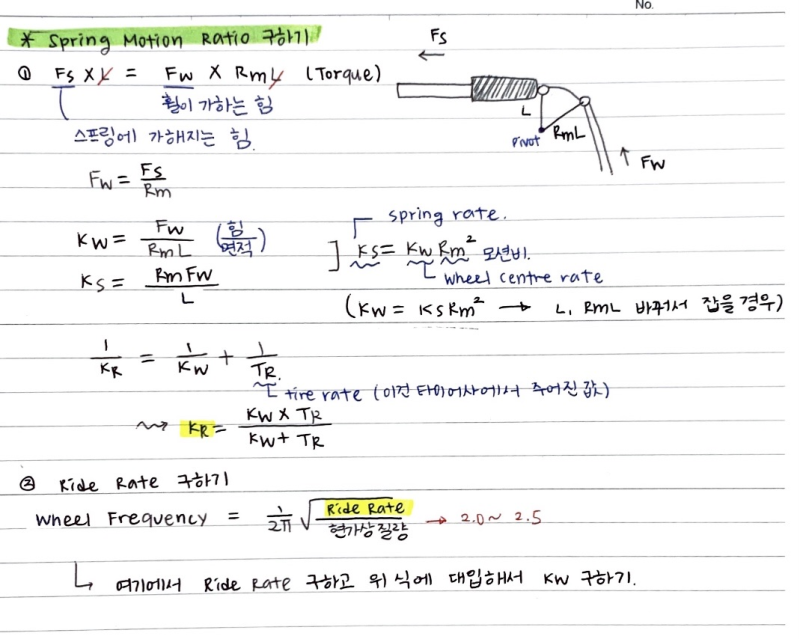 No.
* Spring Motion Ratio 구하기
Fs
① Fs X L = Fw X RmL (Torque)
휠이 가하는 힘
스프링에 가해지는 힘.
L
Pivot RmL
Fw
Fw = Fs/Rm
spring rate.
Kw = Fw/RmL (힘/면적)
Ks = RmFw/L
] Ks = Kw Rm² 모션비.
wheel centre rate
(Kw = Ks Rm² → L, RmL 바꿔서 잡을 경우)
1/KR = 1/Kw + 1/TR.
tire rate (이건 타이어사에서 주어진 값)
⇝ KR = Kw X TR / Kw + TR
② Ride Rate 구하기
Wheel Frequency = 1/2π √(Ride Rate/현가상질량) → 2.0 ~ 2.5
↳ 여기에서 Ride Rate 구하고 위 식에 대입해서 Kw 구하기.